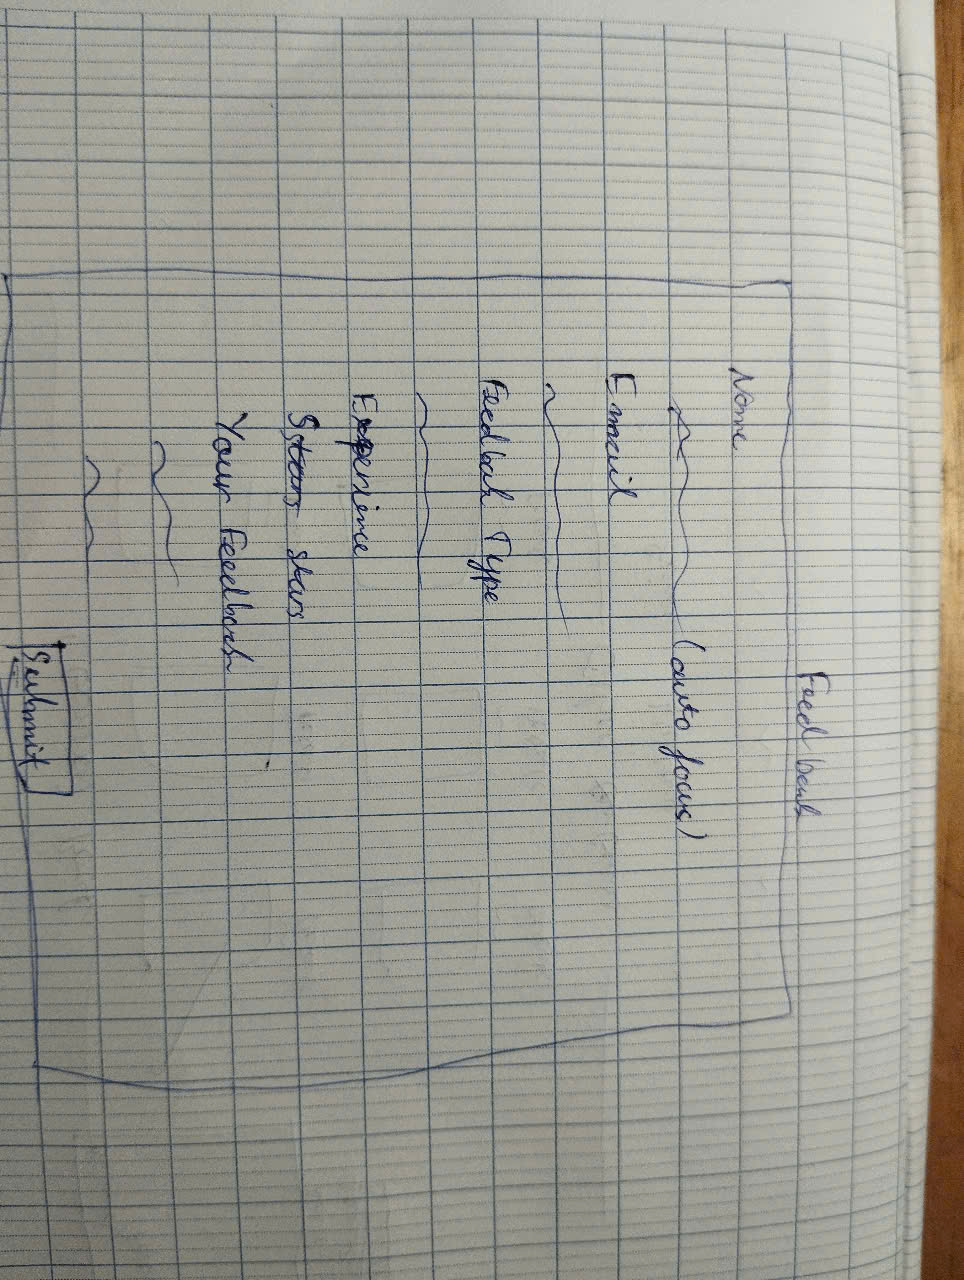 Feed back
Name
(auto focus)
Email
Feedbak Type
Experience
Stars stars
Your Feedback
Submit